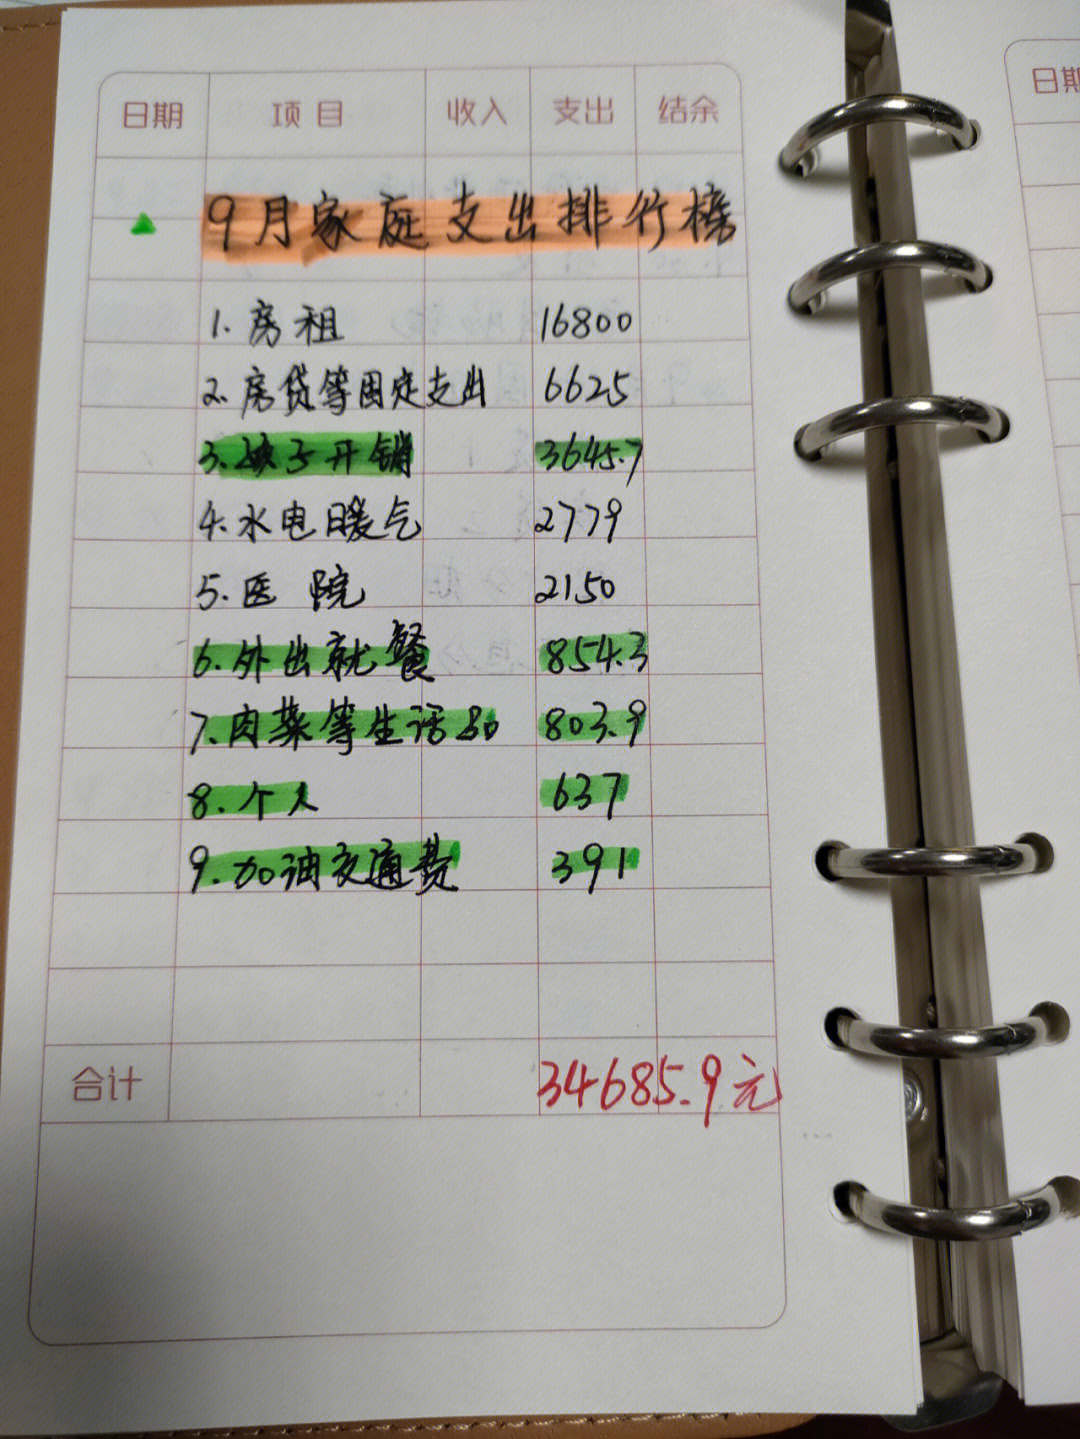 日期 项目 收入 支出 结余
9月家庭支出排行榜
1.房租 16800
2.房贷等固定支出 6625
3.孩子开销 3645.7
4.水电暖气 2779
5.医院 2150
6.外出就餐 854.3
7.肉菜等生活80 803.9
8.个人 637
9.加油交通费 391
合计 34685.9元
日期